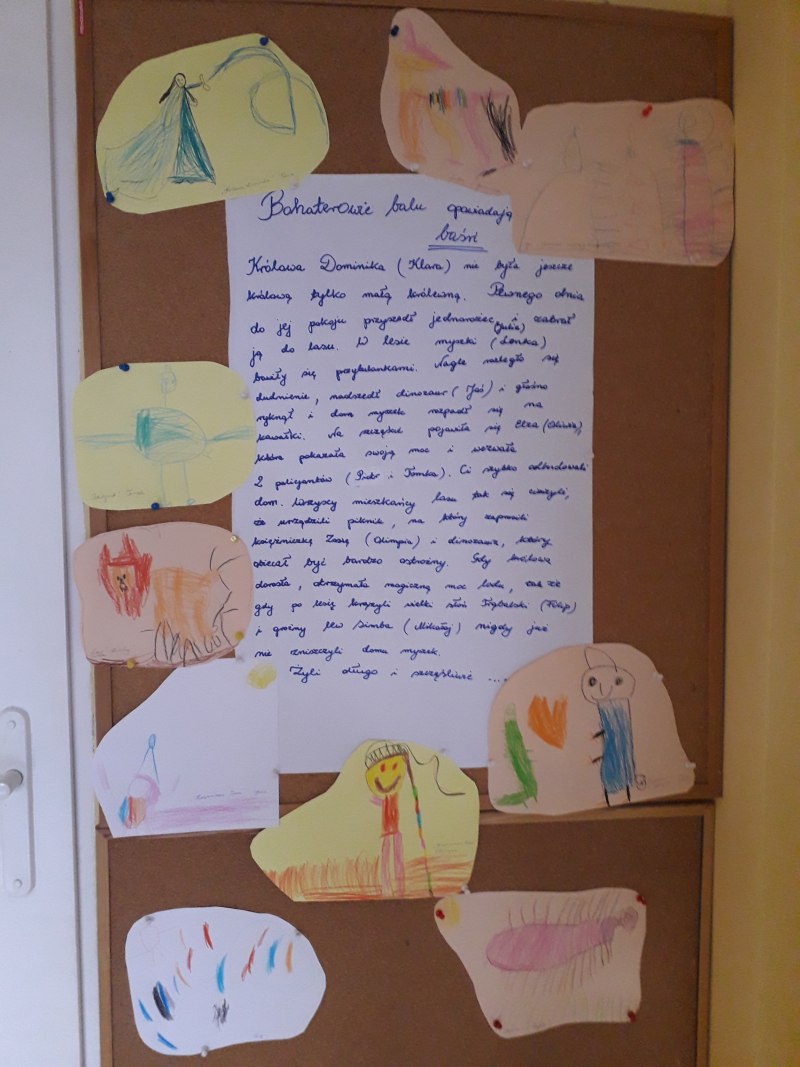 Bohaterowie balu opowiadają
baśń
Królowa Dominika (Klara) nie była jeszcze
królową tylko małą królewną. Pewnego dnia
do jej pokoju przyszedł jednorożec (Julia) i zabrał
ją do lasu. W lesie myszki (Lenka)
bawiły się przytulankami. Nagle rozległo się
dudnienie, nadszedł dinozaur (Jaś) i głośno
ryknął i dom myszek rozpadł się na
kawałki. Na szczęście pojawiła się Elza (Oliwia),
która pokazała swoją moc i wezwała
2 policjantów (Piotr i Tomka). Ci szybko odbudowali
dom. Wszyscy mieszkańcy lasu tak się cieszyli,
że urządzili piknik, na który zaprosili
księżniczkę Zosię (Olimpia) i dinozaura, który
obiecał być bardzo ostrożny. Gdy królowa
dorosła, otrzymała magiczną moc lodu, tak że
gdy po lesie krążyli wielki słoń Trąbalski (Filip)
i groźny lew Simba (Mikołaj) nigdy już
nie zniszczyli domu myszek.
Żyli długo i szczęśliwie ...